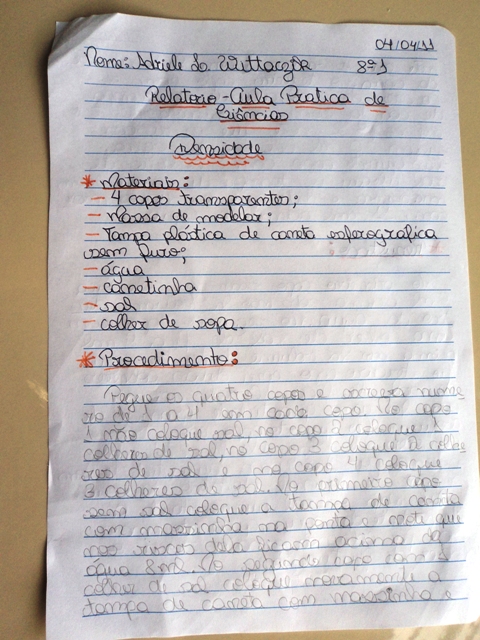 04/04/11
Nome: Adriele de Wittaczik 8ª1
Relatorio - Aula Pratica de
Ciências
Densidade
* Materiais:
- 4 copos transparentes;
- Massa de modelar;
- Tampa plástica de caneta esferografica
sem furo;
- água
- canetinha
- sal
- colher de sopa.
* Procedimento:
Pegue os quatro copos e escreva nume
ro de 1 a 4 em cada copo. No copo
1 não coloque sal, no copo 2 coloque 1
colheres de sal, no copo 3 coloque 2 colhe
res de sal e no copo 4 coloque
3 colheres de sal. No primeiro copo
sem sal coloque a tampa de caneta
com massinha na ponta e note que
nos dela ficaram acima da
água 8ml. No segundo copo com 1
colher de sal coloque novamente a
tampa de caneta com massinha e